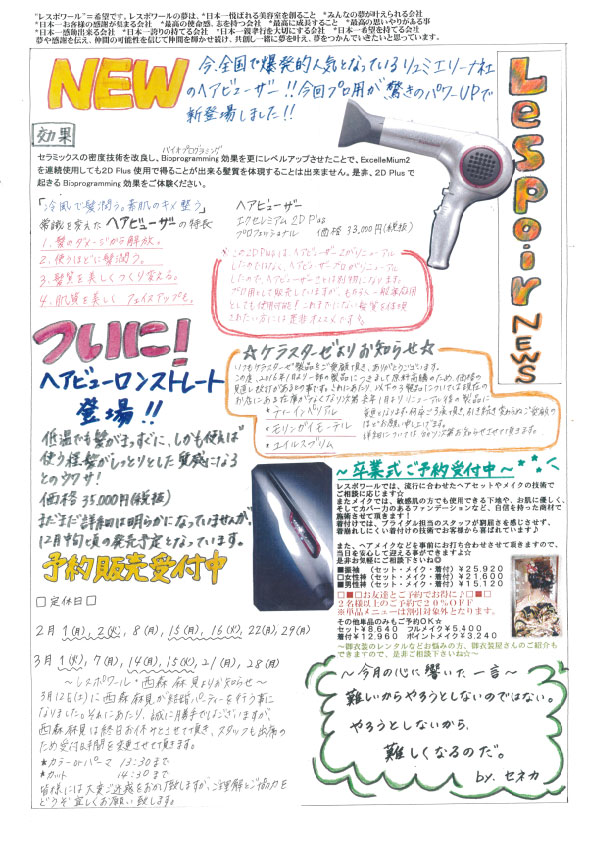 "レスポワール"=希望です。レスポワールの夢は、*日本一悦ばれる美容室を創ること *みんなの夢が叶えられる会社
*日本一お客様の感謝が集まる会社 *最高の使命感、志を持つ会社 *最高に成長すること *最高の思いやりがある事
*日本一感動出来る会社 *日本一誇りの持てる会社 *日本一親孝行を大切にする会社 *日本一希望を持てる会社
夢や感謝を伝え、仲間の可能性を信じて仲間を輝かせ続け、共創し一緒に夢を叶え、夢をつかんでいきたいと思っています。
NEW
今、全国で爆発的人気となっているリュミエリーナ社
のヘアビューザー!!今回プロ用が驚きのパワーUPで
新登場しました!!
Lespoir NEWS
効果
バイオプログラミング
セラミックスの密度技術を改良し、Bioprogramming 効果を更にレベルアップさせたことで、ExcelleMium2
を連続使用しても2D Plus 使用で得ることが出来る髪質を体現することは出来ません。是非、2D Plus で
起きる Bioprogramming 効果をご体験ください。
「冷風で髪潤う。素肌のキメ整う」
常識を変えたヘアビューザーの特長
1. 髪のダメージから解放。
2. 使うほどに髪潤う。
3. 髪質を美しくつくり変える。
4. 肌質を美しく フェイスアップも。
ヘアビューザー
エクセレミアム 2D Plus
プロフェッショナル 価格 33,000円(税抜)
この2D Plusは、ヘアビューザー2がリニューアル
したのではなく、ヘアビューザープロがリニューアル
したので、ヘアビューザー2とは別物になります。
プロ用として販売していますが、もちろん一般家庭用
としても使用可能!これまでにない髪質を体現
されたい方には是非オススメです。
ついに!
ヘアビューロンストレート
登場!!
低温でも髪がまっすぐに、しかも使えば
使う程、髪がしっとりとした質感になる
とのウワサ!
価格 35,000円(税抜)
まだまだ詳細は明らかになっていませんが、
12月中旬頃の発売予定となっています。
予約販売受付中
☆ケラスターゼよりお知らせ☆
いつもケラスターゼ製品をご愛顧頂き、ありがとうございます。
この度、2016年1月より一部の製品につきまして原料高騰のため、価格の
見直しをする事となりました。
*ティーインペリアル
*モリンガイモーテル
*エイルスブリム
~卒業式ご予約受付中~
レスポワールでは、流行に合わせたヘアセットやメイクの技術で
ご相談に応じます☆
またメイクでは、敏感肌の方でも使用できる下地や、お肌に優しく、
そしてカバー力のあるファンデーションなど、自信を持った商材で
施術させて頂きます!
着付けでは、ブライダル担当のスタッフが窮屈さを感じさせず、
着崩れしにくい着付けの技術でお客様から喜ばれています♪
また、ヘアメイクなどを事前にお打ち合わせさせて頂きますので、
当日を安心して迎える事ができます♪☆
是非お気軽にご相談下さいね◎
■振袖 (セット・メイク・着付) ¥25,920
□女性袴 (セット・メイク・着付) ¥21,600
■男性袴 (セット・メイク・着付) ¥15,120
□■□お友達とご予約でお得に♪□■□
2名様以上のご予約で20%OFF
※単品メニューは割引対象外となります。
その他単品のみもご予約OK☆
セット¥8,640 フルメイク¥5,400
着付¥12,960 ポイントメイク¥3,240
~御衣裳のレンタルなどお悩みの方、御衣装屋さんのご紹介も
できますので、是非ご相談下さいね☆~
□定休日□
2月 1(月), 2(火), 8(月), 15(月), 16(火), 22(月), 29(月)
3月 1(火), 7(月), 14(月), 15(火), 21(月), 28(月)
~レスポワール・西森麻見よりお知らせ~
3月12日(土)に西森麻見が結婚パーティーを行う事に
なりました。それにあたり、誠に勝手ではございますが、
西森麻見は終日お休みとさせて頂き、スタッフも出席の
ため受付時間を変更させて頂きます。
*カラーorパーマ 13:30まで
*カット 14:30まで
皆様には大変ご迷惑をおかけ致しますが、ご理解とご協力を
どうぞ宜しくお願い致します。
~今月の心に響いた一言~
難しいからやろうとしないのではない。
やろうとしないから、
難しくなるのだ。
by. セネカ